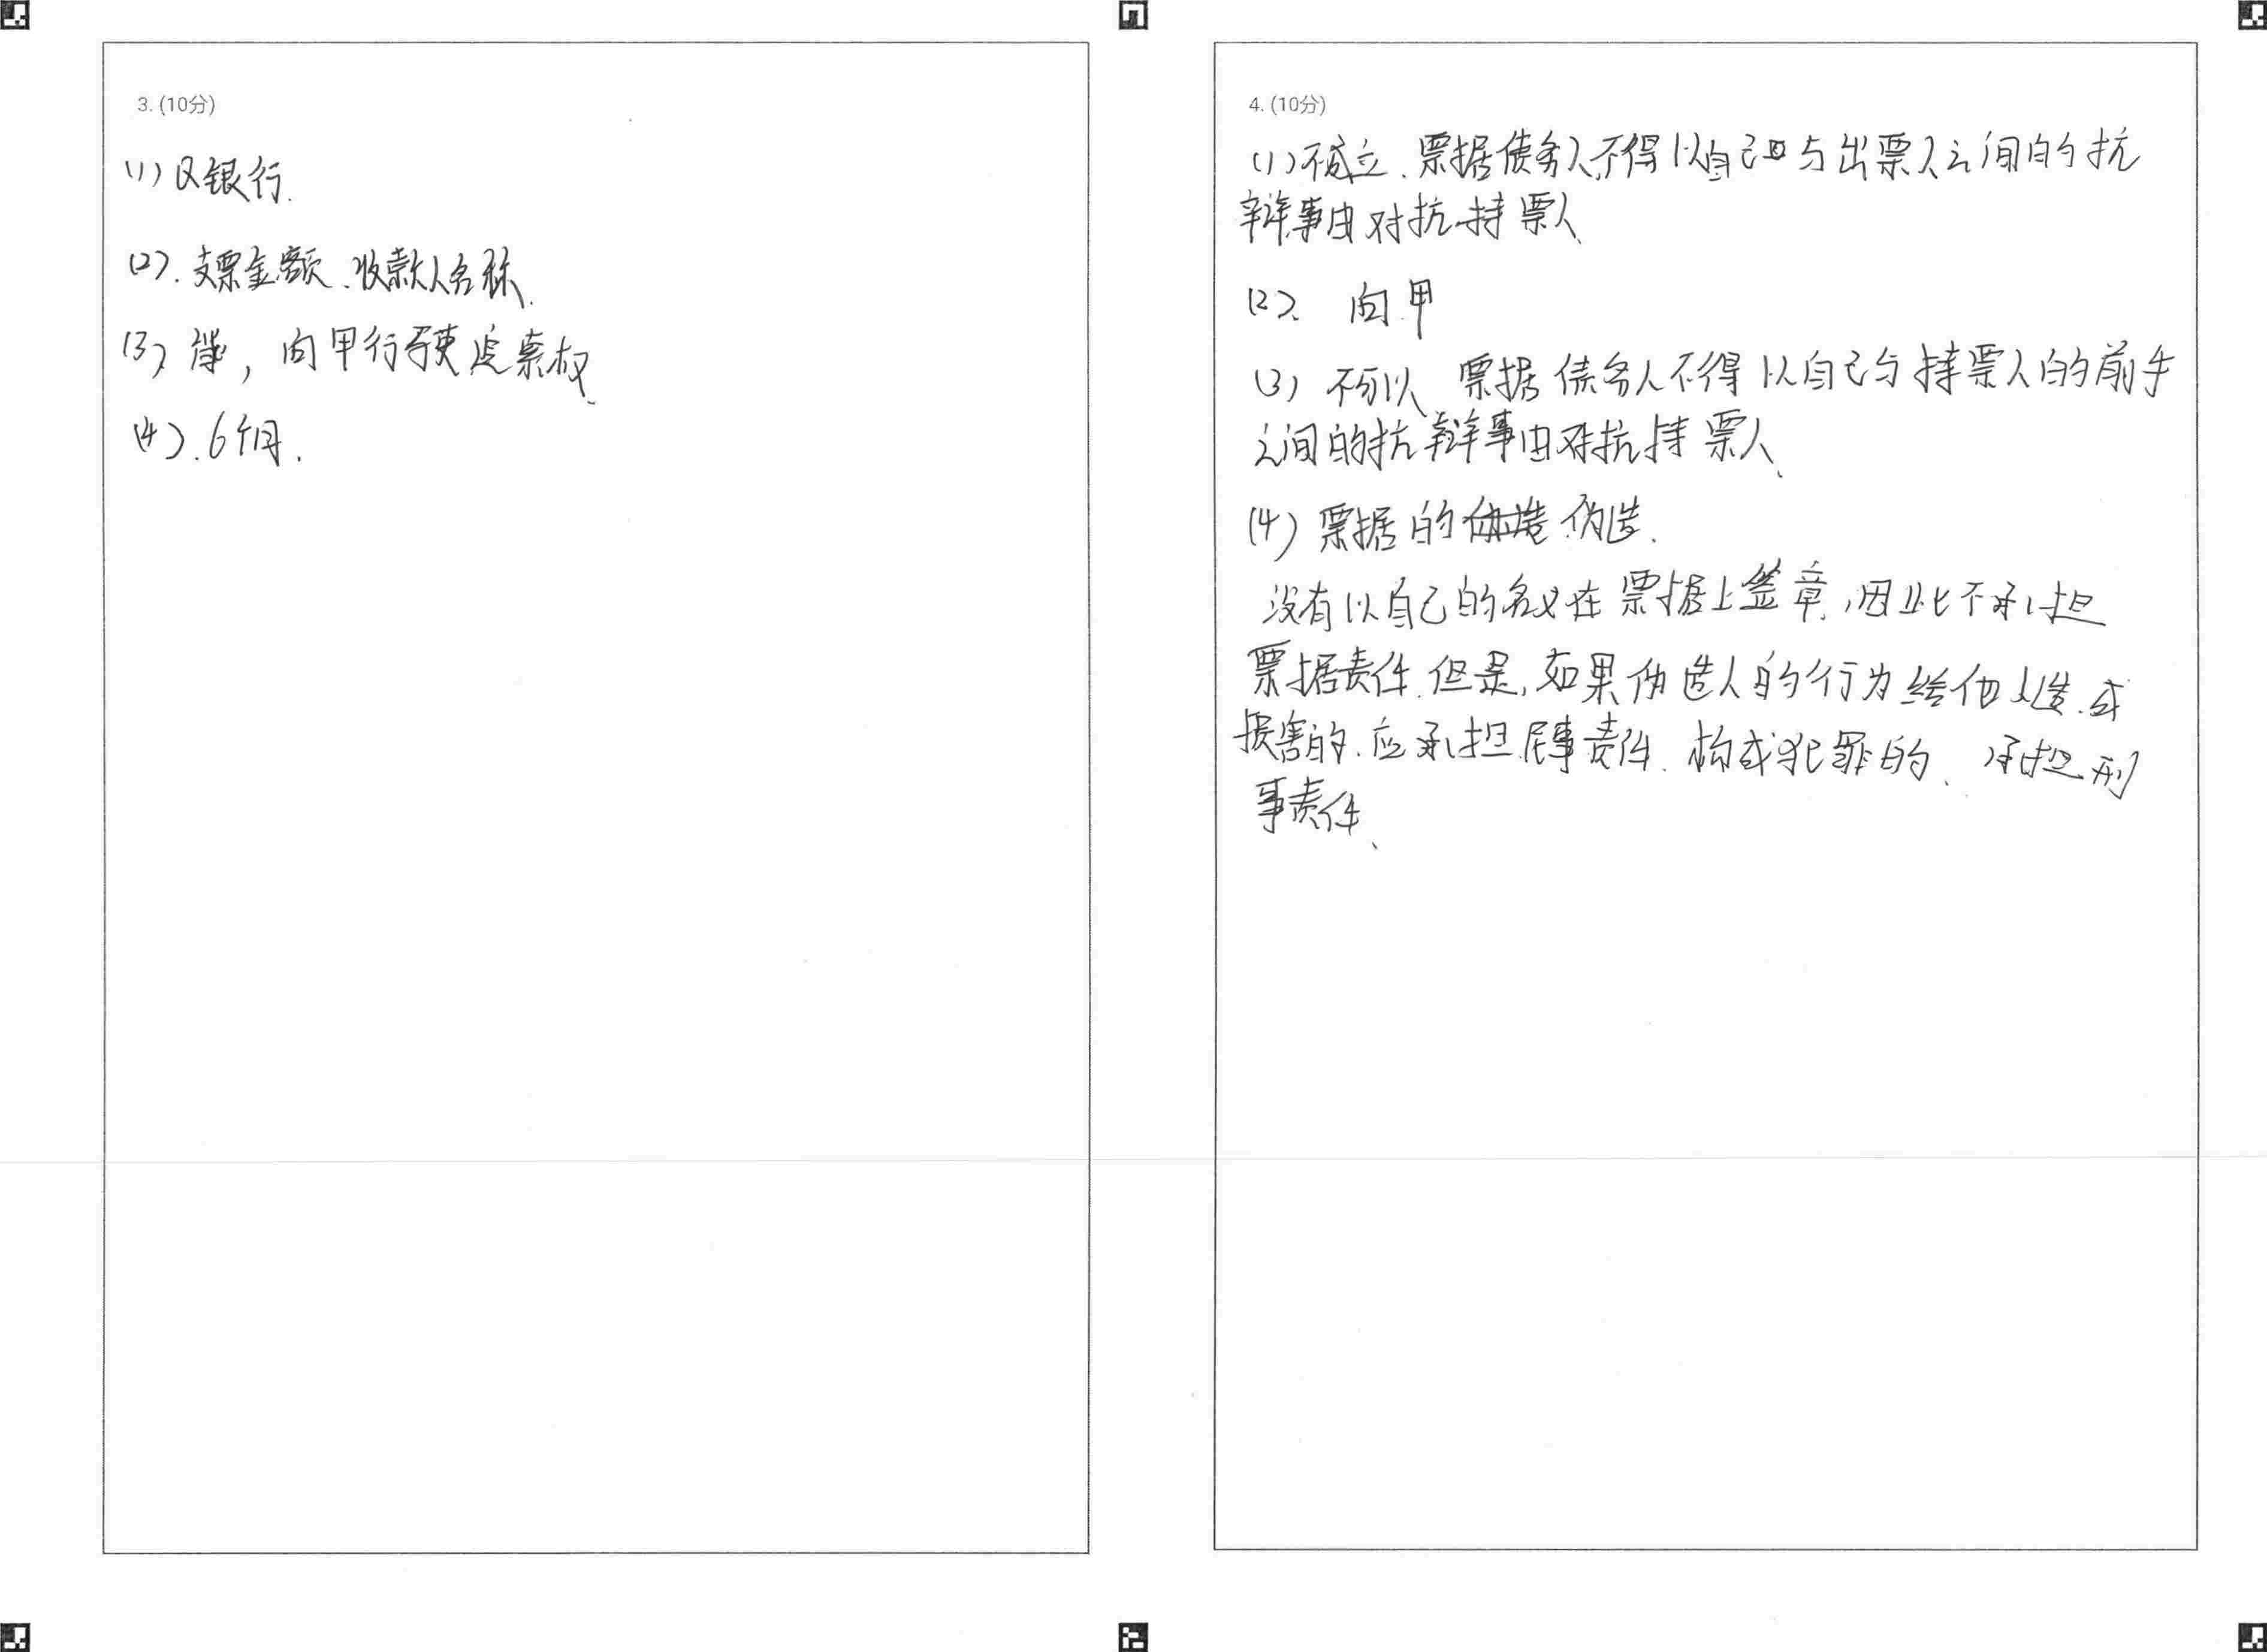 3. (10分)
(1) Q银行.
(2). 支票金额、收款人名称.
(3) 能, 向甲行使追索权、
(4). 6个月.
4. (10分)
(1)不成立、票据债务人不得以自己与出票人之间的抗
辩事由对抗持票人、
(2)、向甲
(3) 不可以、票据债务人不得以自己与持票人的前手
之间的抗辩事由对抗持票人、
(4) 票据的伪造.
没有以自己的名义在票据上签章,因此不承担
票据责任.但是,如果伪造人的行为给他人造成
损害的.应承担民事责任.构成犯罪的、承担刑
事责任、